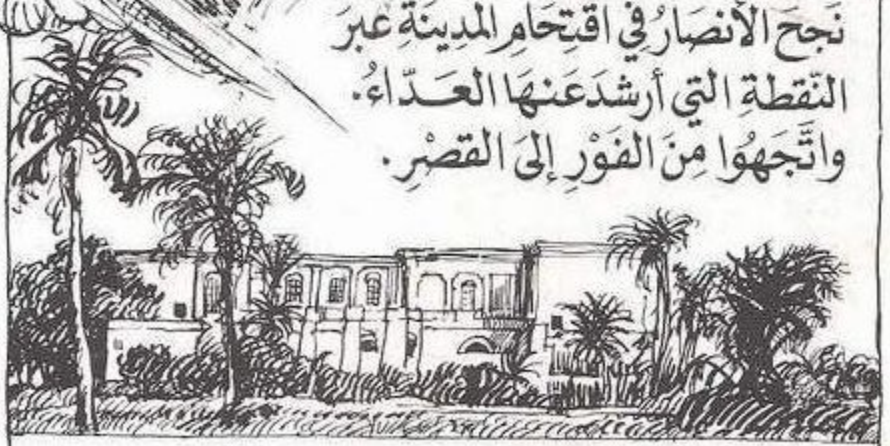 نَجَحَ الأنصَارُ في اقتِحَامِ المدِينَةِ عبرَ
النّقطةِ التي أرشدَ عَنهَا العَدّاءُ.
واتَّجَهُوا مِنَ الفَوْرِ إلىَ القصْرِ.